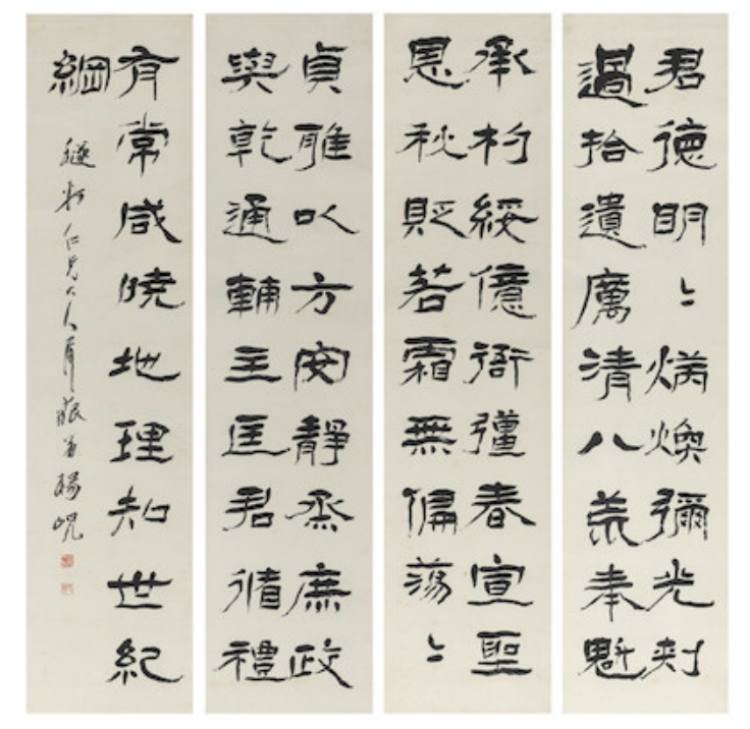 君德明〻炳煥彌光刺
過拾遺厲清八荒奉魁
承杓綏億衙彊春宣聖
恩秋貶若霜無偏蕩〻
貞雅以方安靜烝庶政
與乾通輔主匡君循禮
有常咸曉地理知世紀
綱
仁兄大人屬藐翁楊峴